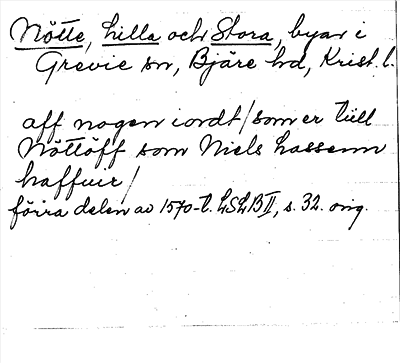 Nötte, Lilla och Stora, byar i
Grevie sn, Bjäre hd, Krist. l.
aff nogen iordt / som er tüll
Nöttöff som Niels Lassenn
haffuir /
förra delen av 1570-t. LSLB II, s. 32. orig.